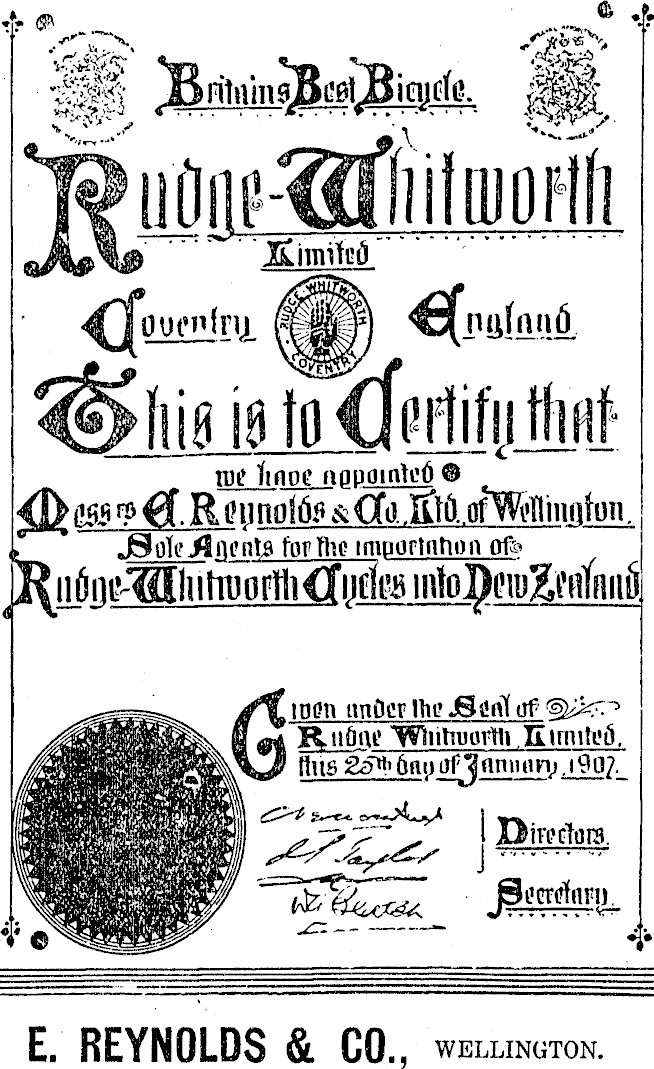 Britains Best Bicycle.
Rudge-Whitworth
Limited
Coventry
RUDGE-WHITWORTH
COVENTRY
England
This is to Certify that
we have appointed
Messrs E. Reynolds & Co., Ltd. of Wellington.
Sole Agents for the importation of
Rudge-Whitworth Cycles into New Zealand
Given under the Seal of
Rudge Whitworth Limited,
this 25th day of January, 1907.
Directors.
Secretary.
E. REYNOLDS & CO., WELLINGTON.